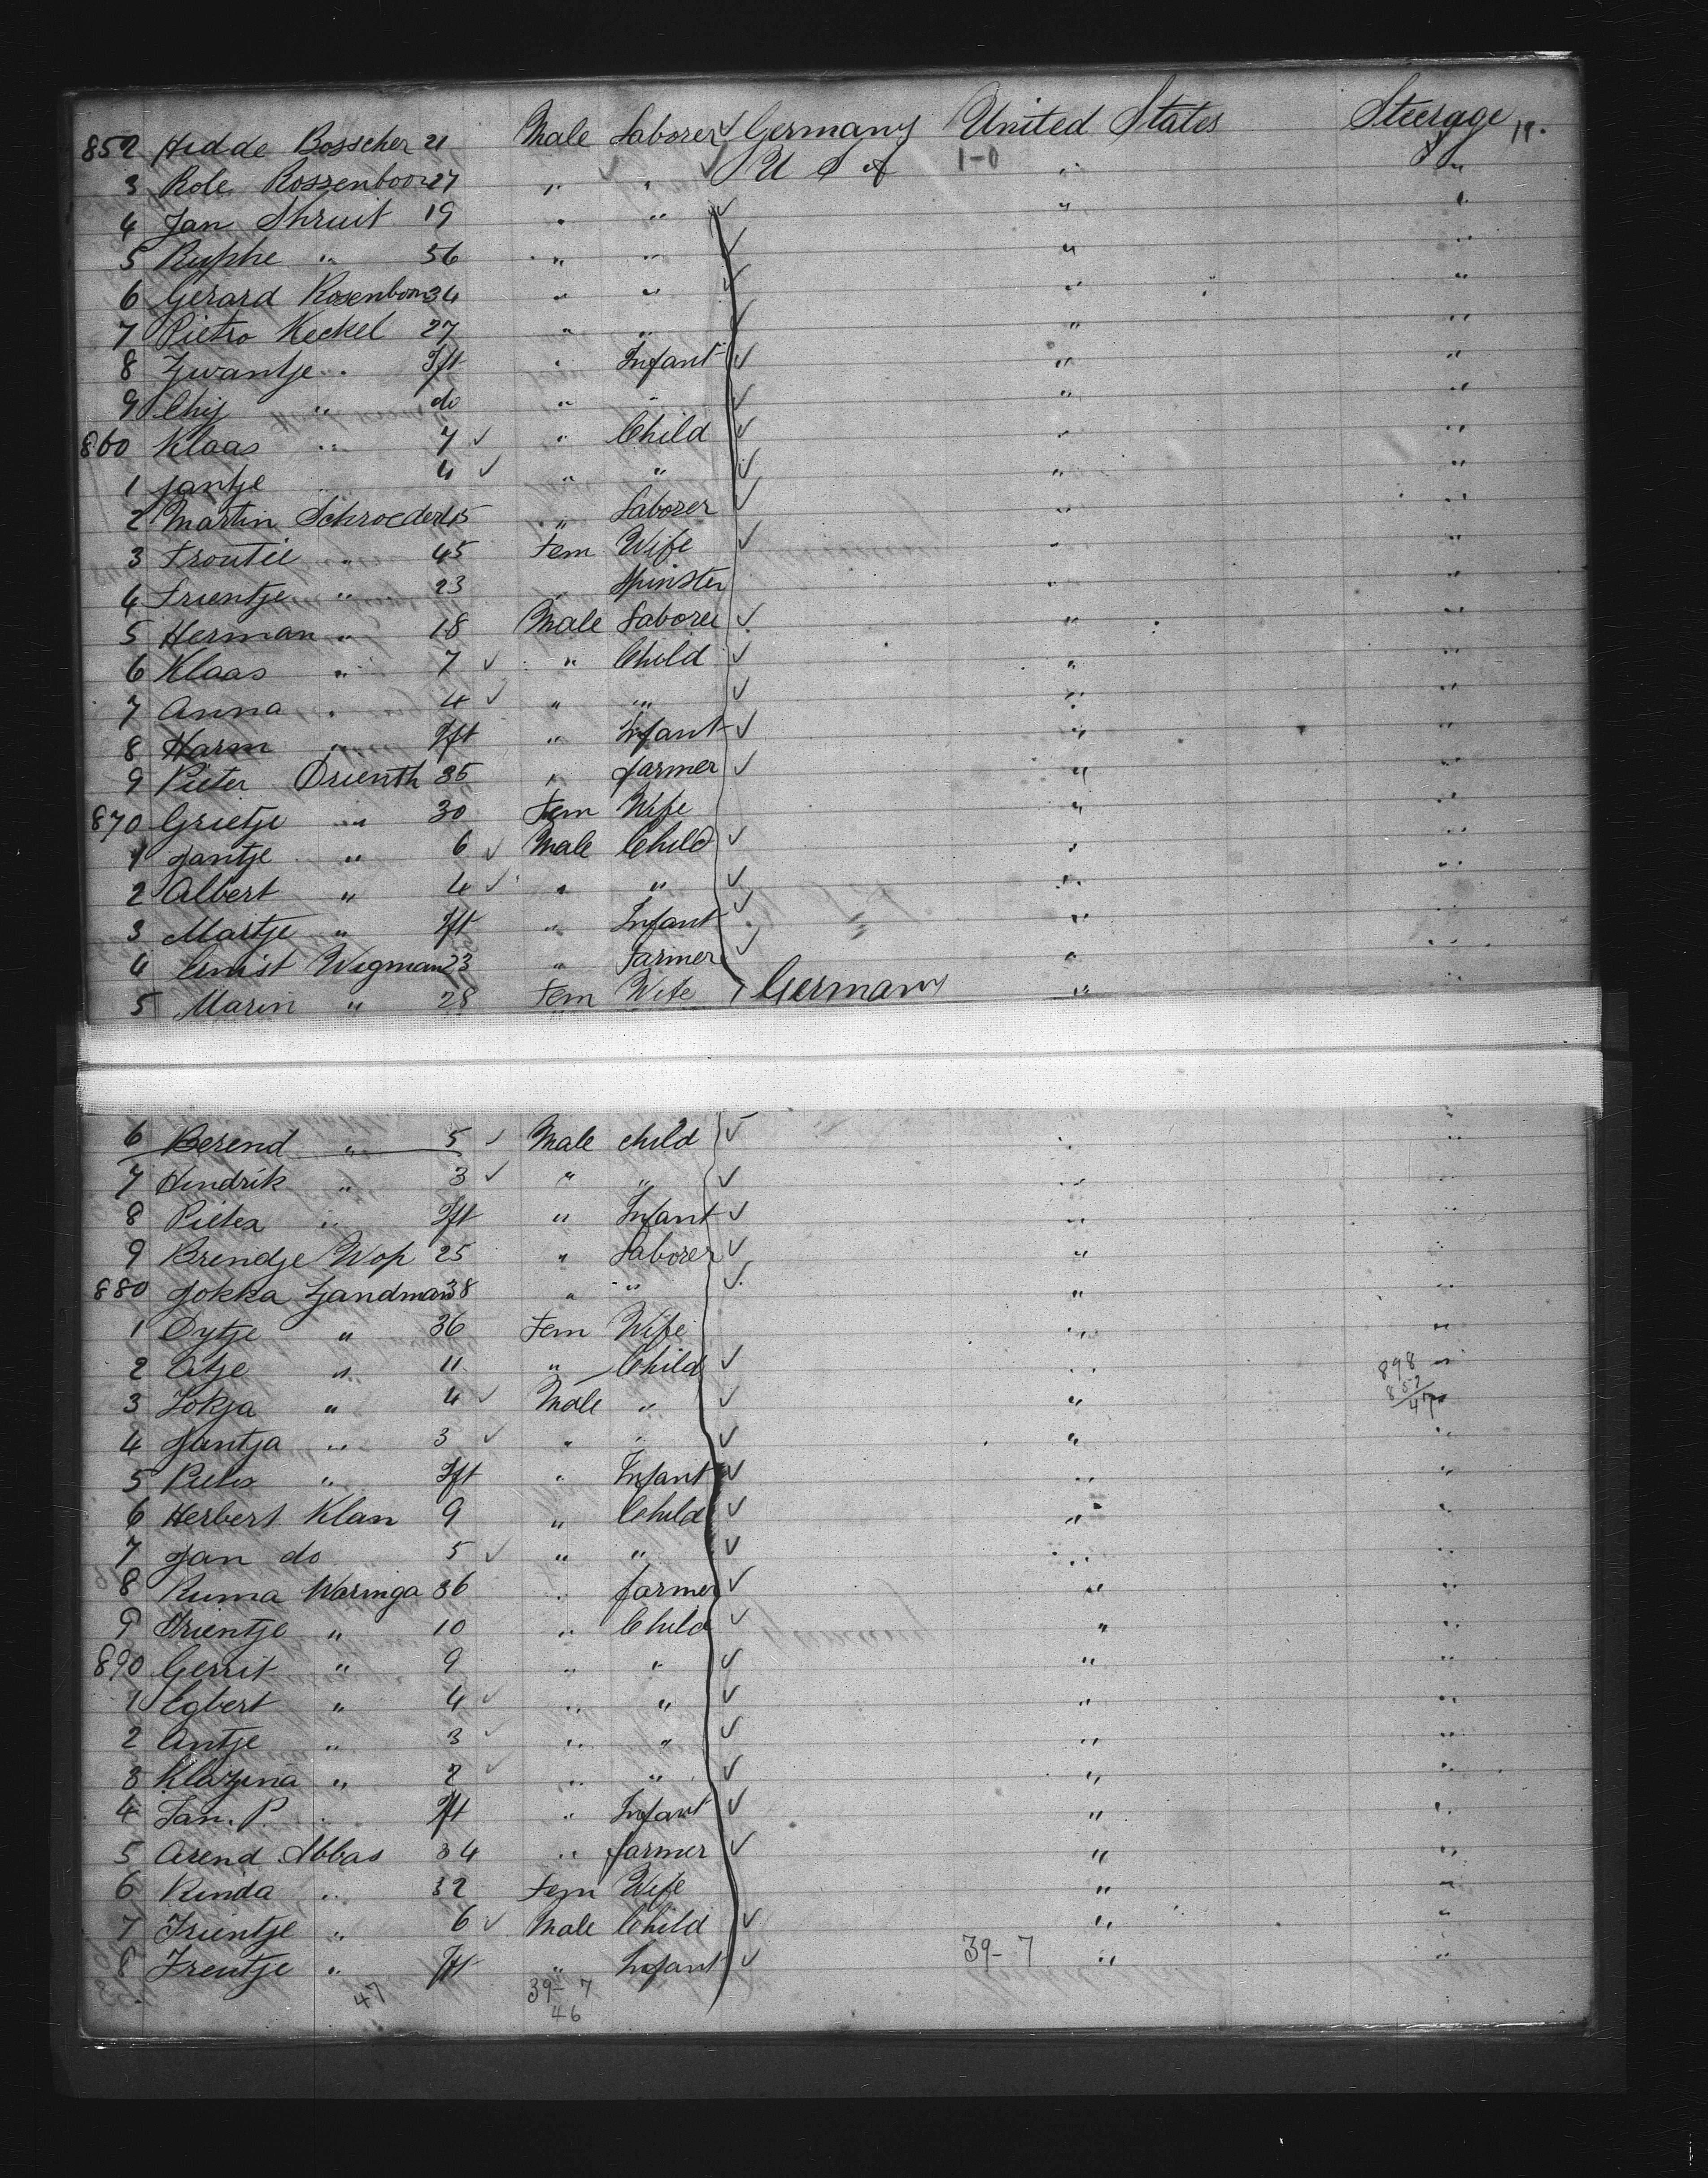 852 Hidde Bosscher 21 Male Laborer Germany United States Steerage 19.
3 Role Rossenboom 27 " " U S A 1-0 " "
4 Jan Shruit 19 " " " "
5 " 56 " " " "
6 Gerard Rosenbom 34 " " " "
7 Pietro Keckel 27 " " " "
8 Zwantje " Ift " Infant " "
9 " do " " " "
860 Klaas " 7 " Child " "
1 Jantje 4 " " " "
2 Martin Schroeder 45 " Laborer " "
3 " 45 Fem Wife " "
4 Trientje " 23 " Spinster " "
5 Herman " 18 Male Laborer " "
6 Klaas " 7 " Child " "
7 Anna " 4 " " " "
8 Harm " Ift " Infant " "
9 Pieter Drienth 35 " farmer " "
870 Grietje " 30 Fem Wife " "
1 Jantje " 6 Male Child " "
2 Albert " 4 " " " "
3 Martje " Ift " Infant " "
4 Ernst Wegman 23 " Farmer " "
5 Marin " 28 Fem Wife Germany " "
6 Berend " 5 Male child " "
7 Hendrik " 3 " " " "
8 Pieter " Ift " Infant " "
9 Brendje Wop 25 " Laborer " "
880 Jokka Zandman 38 " " " "
1 Dytje " 36 Fem Wife " "
2 Atje " 11 " Child " 898 "
3 Jokja " 4 Male " " 852 "
47
4 Jantja " 3 " " " "
5 " Ift " Infant " "
6 Herbert Klan 9 " Child " "
7 Jan do 5 " " " "
8 Ruma Waringa 36 " farmer " "
9 Trientje " 10 " Child " "
890 Gerrit " 9 " " " "
1 Egbert " 4 " " " "
2 Antje " 3 " " " "
3 Klazina " 2 " " " "
4 Jan. P. " Ift " Infant " "
5 Arend Abbas 34 " farmer " "
6 Rinda " 32 Fem Wife " "
7 Trientje " 6 Male Child " "
8 Trentje " Ift " Infant 39-7 " "
47 39-7
46